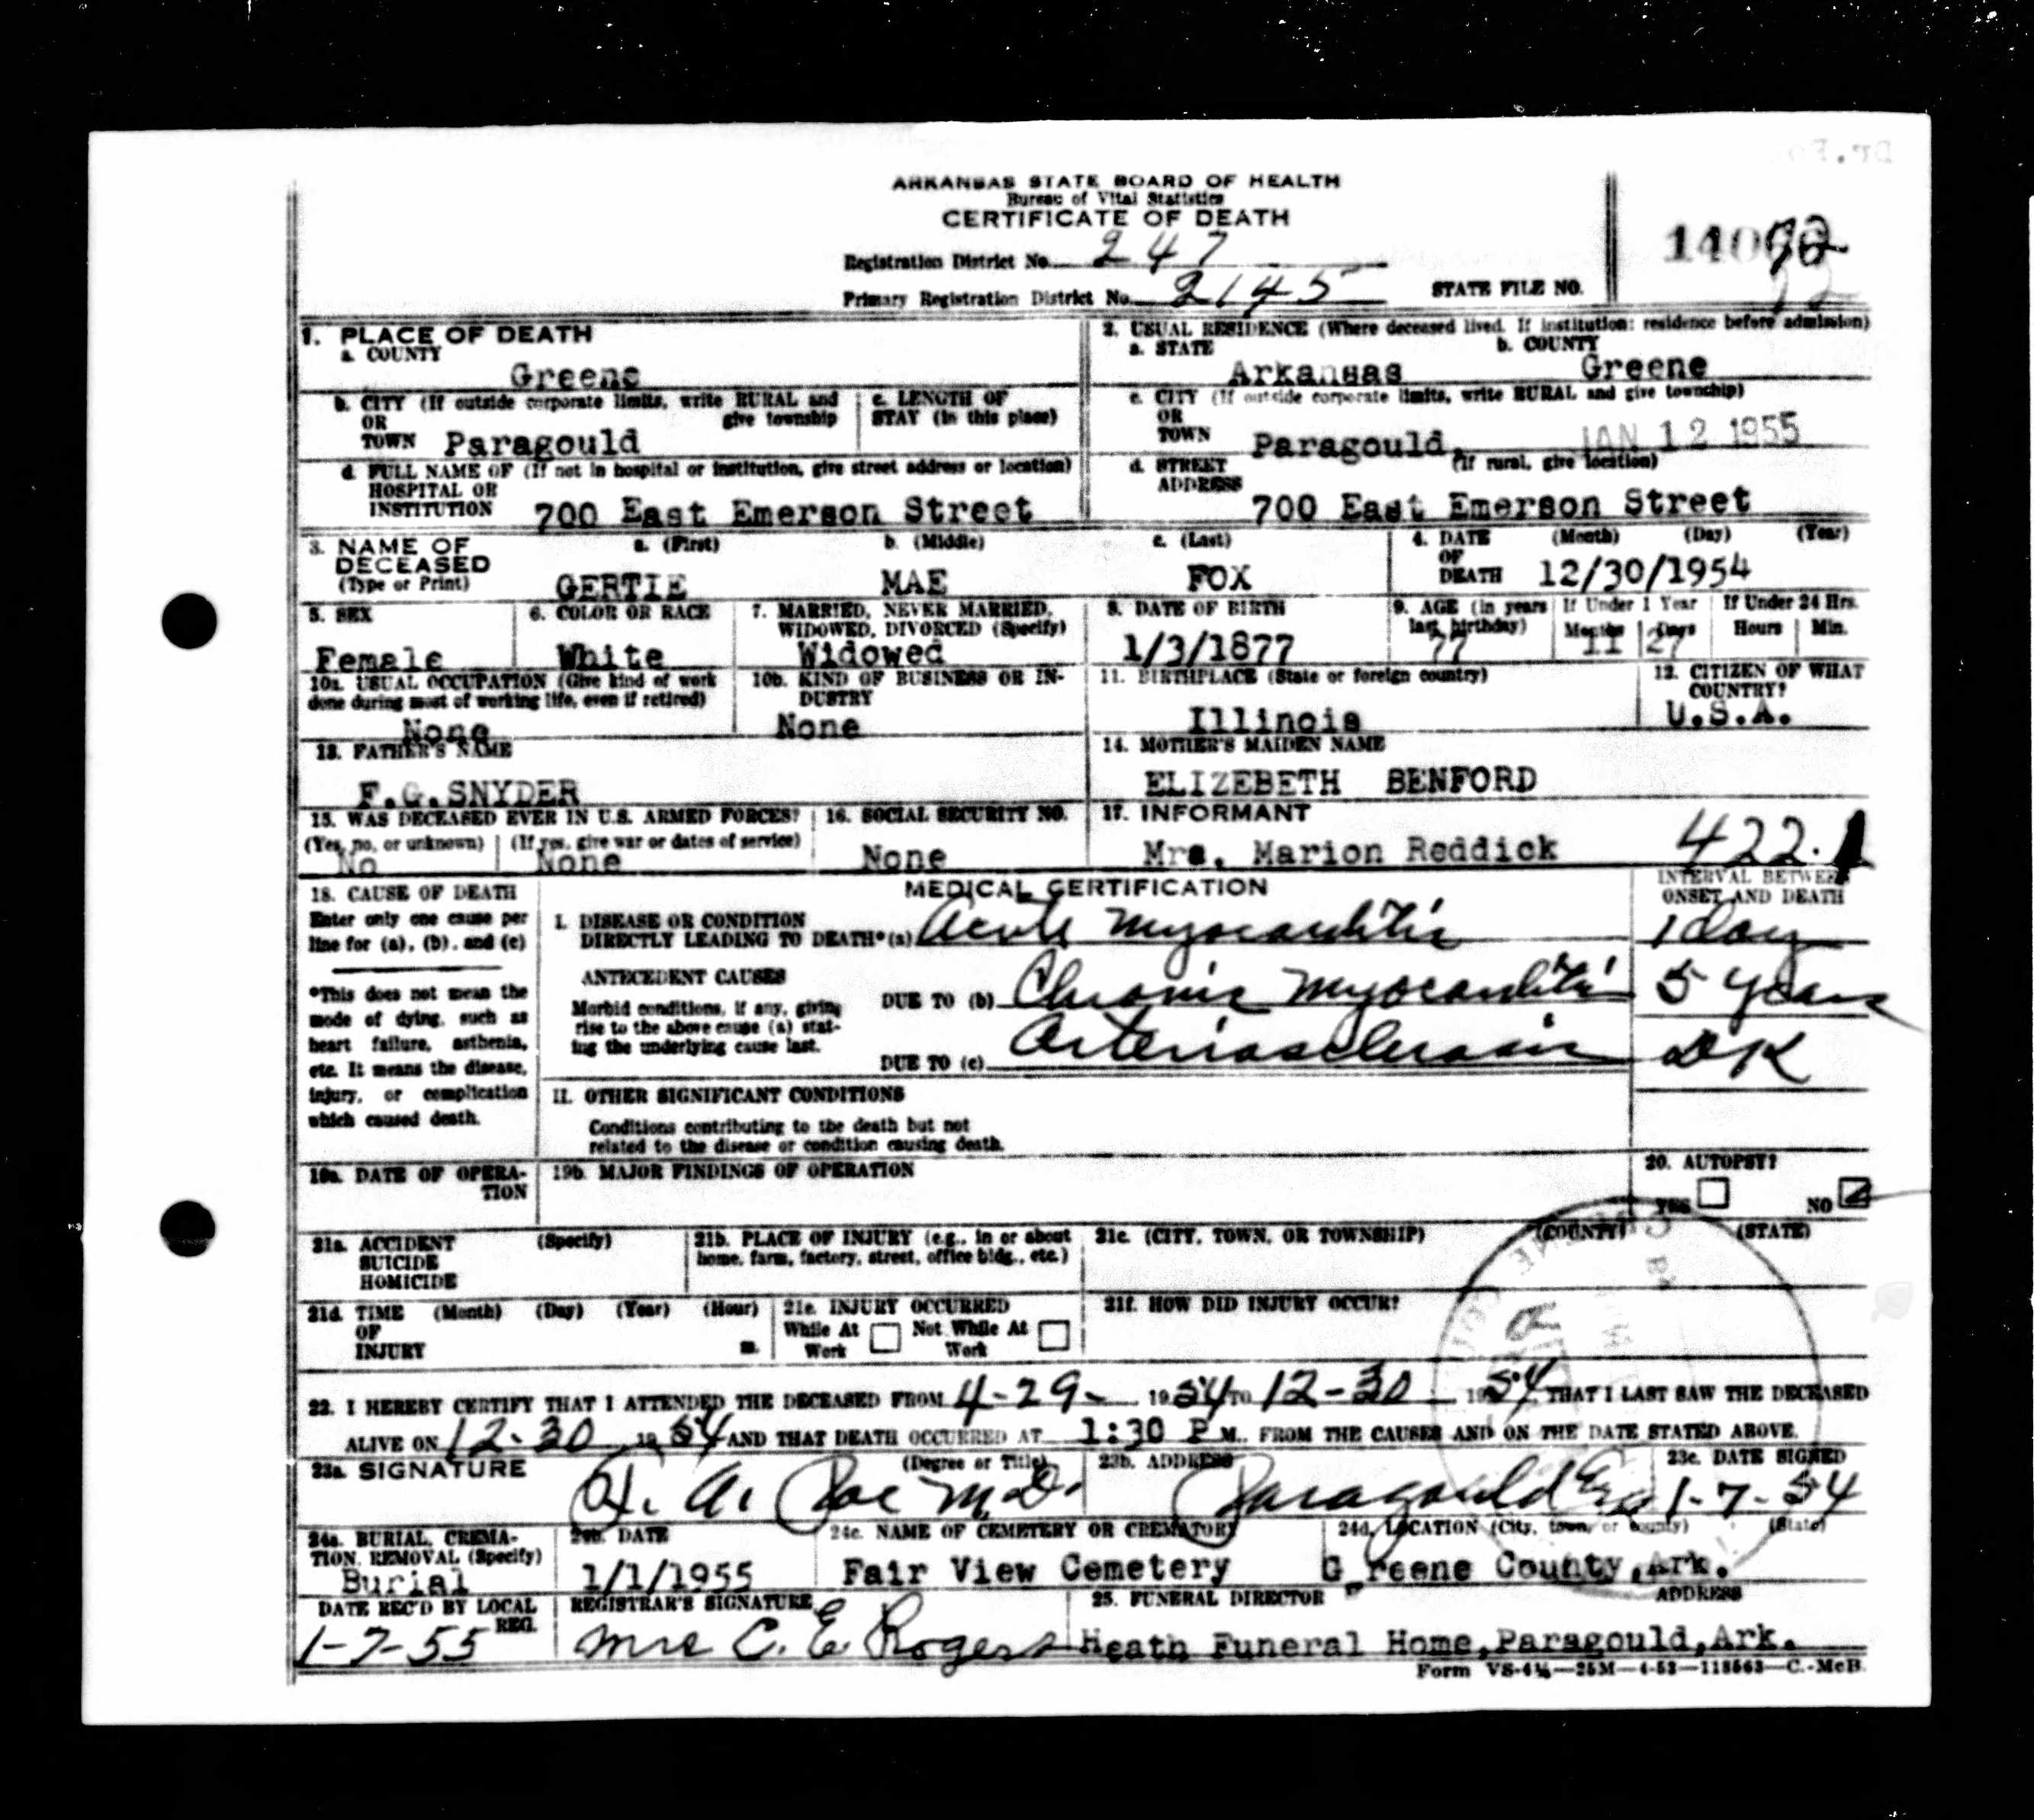 ARKANSAS STATE BOARD OF HEALTH
Bureau of Vital Statistics
CERTIFICATE OF DEATH
Registration District No. 247
Primary Registration District No. 2145
STATE FILE NO.
1. PLACE OF DEATH
a. COUNTY
Greene
b. CITY (If outside corporate limits, write RURAL and give township
OR
TOWN Paragould
c. LENGTH OF STAY (in this place)
d. FULL NAME OF (If not in hospital or institution, give street address or location)
HOSPITAL OR
INSTITUTION 700 East Emerson Street
2. USUAL RESIDENCE (Where deceased lived. If institution: residence before admission)
a. STATE Arkansas
b. COUNTY Greene
c. CITY (If outside corporate limits, write RURAL and give township)
OR
TOWN Paragould,
JAN 12 1955
d. STREET (If rural, give location)
ADDRESS 700 East Emerson Street
3. NAME OF DECEASED
(Type or Print)
a. (First) GERTIE
b. (Middle) MAE
c. (Last) FOX
4. DATE OF DEATH (Month) (Day) (Year)
12/30/1954
5. SEX
Female
6. COLOR OR RACE
White
7. MARRIED, NEVER MARRIED, WIDOWED, DIVORCED (Specify)
Widowed
8. DATE OF BIRTH
1/3/1877
9. AGE (in years last birthday)
77
If Under 1 Year
Months 11 Days 27
If Under 24 Hrs.
Hours Min.
10a. USUAL OCCUPATION (Give kind of work done during most of working life, even if retired)
None
10b. KIND OF BUSINESS OR INDUSTRY
None
11. BIRTHPLACE (State or foreign country)
Illinois
12. CITIZEN OF WHAT COUNTRY?
U.S.A.
13. FATHER'S NAME
F.G.SNYDER
14. MOTHER'S MAIDEN NAME
ELIZEBETH BENFORD
15. WAS DECEASED EVER IN U.S. ARMED FORCES?
(Yes, no, or unknown) (If yes, give war or dates of service)
No None
16. SOCIAL SECURITY NO.
None
17. INFORMANT
Mrs. Marion Reddick
422.1
18. CAUSE OF DEATH
Enter only one cause per line for (a), (b), and (c)
*This does not mean the mode of dying, such as heart failure, asthenia, etc. It means the disease, injury, or complication which caused death.
MEDICAL CERTIFICATION
INTERVAL BETWEEN ONSET AND DEATH
I. DISEASE OR CONDITION
DIRECTLY LEADING TO DEATH*(a) Acute Myocarditis 1 day
ANTECEDENT CAUSES
Morbid conditions, if any, giving rise to the above cause (a) stating the underlying cause last.
DUE TO (b) Chronic Myocarditis 5 years
DUE TO (c) Arteriosclerosis DK
II. OTHER SIGNIFICANT CONDITIONS
Conditions contributing to the death but not related to the disease or condition causing death.
19a. DATE OF OPERATION
19b. MAJOR FINDINGS OF OPERATION
20. AUTOPSY?
YES NO
21a. ACCIDENT (Specify)
SUICIDE
HOMICIDE
21b. PLACE OF INJURY (e.g., in or about home, farm, factory, street, office bldg., etc.)
21c. (CITY, TOWN, OR TOWNSHIP) (COUNTY) (STATE)
21d. TIME (Month) (Day) (Year) (Hour)
OF
INJURY m.
21e. INJURY OCCURRED
While At Work Not While At Work
21f. HOW DID INJURY OCCUR?
22. I HEREBY CERTIFY THAT I ATTENDED THE DECEASED FROM 4-29- 1954 TO 12-30 1954, THAT I LAST SAW THE DECEASED
ALIVE ON 12-30 1954 AND THAT DEATH OCCURRED AT 1:30 P M., FROM THE CAUSES AND ON THE DATE STATED ABOVE.
23a. SIGNATURE (Degree or Title)
M.D.
23b. ADDRESS
Paragould
23c. DATE SIGNED
1-7-54
24a. BURIAL, CREMATION, REMOVAL (Specify)
Burial
24b. DATE
1/1/1955
24c. NAME OF CEMETERY OR CREMATORY
Fair View Cemetery
24d. LOCATION (City, town, or county) (State)
G reene County,Ark.
DATE REC'D BY LOCAL REG.
1-7-55
REGISTRAR'S SIGNATURE
Mrs C. E. Rogers
25. FUNERAL DIRECTOR ADDRESS
Heath Funeral Home,Paragould,Ark.